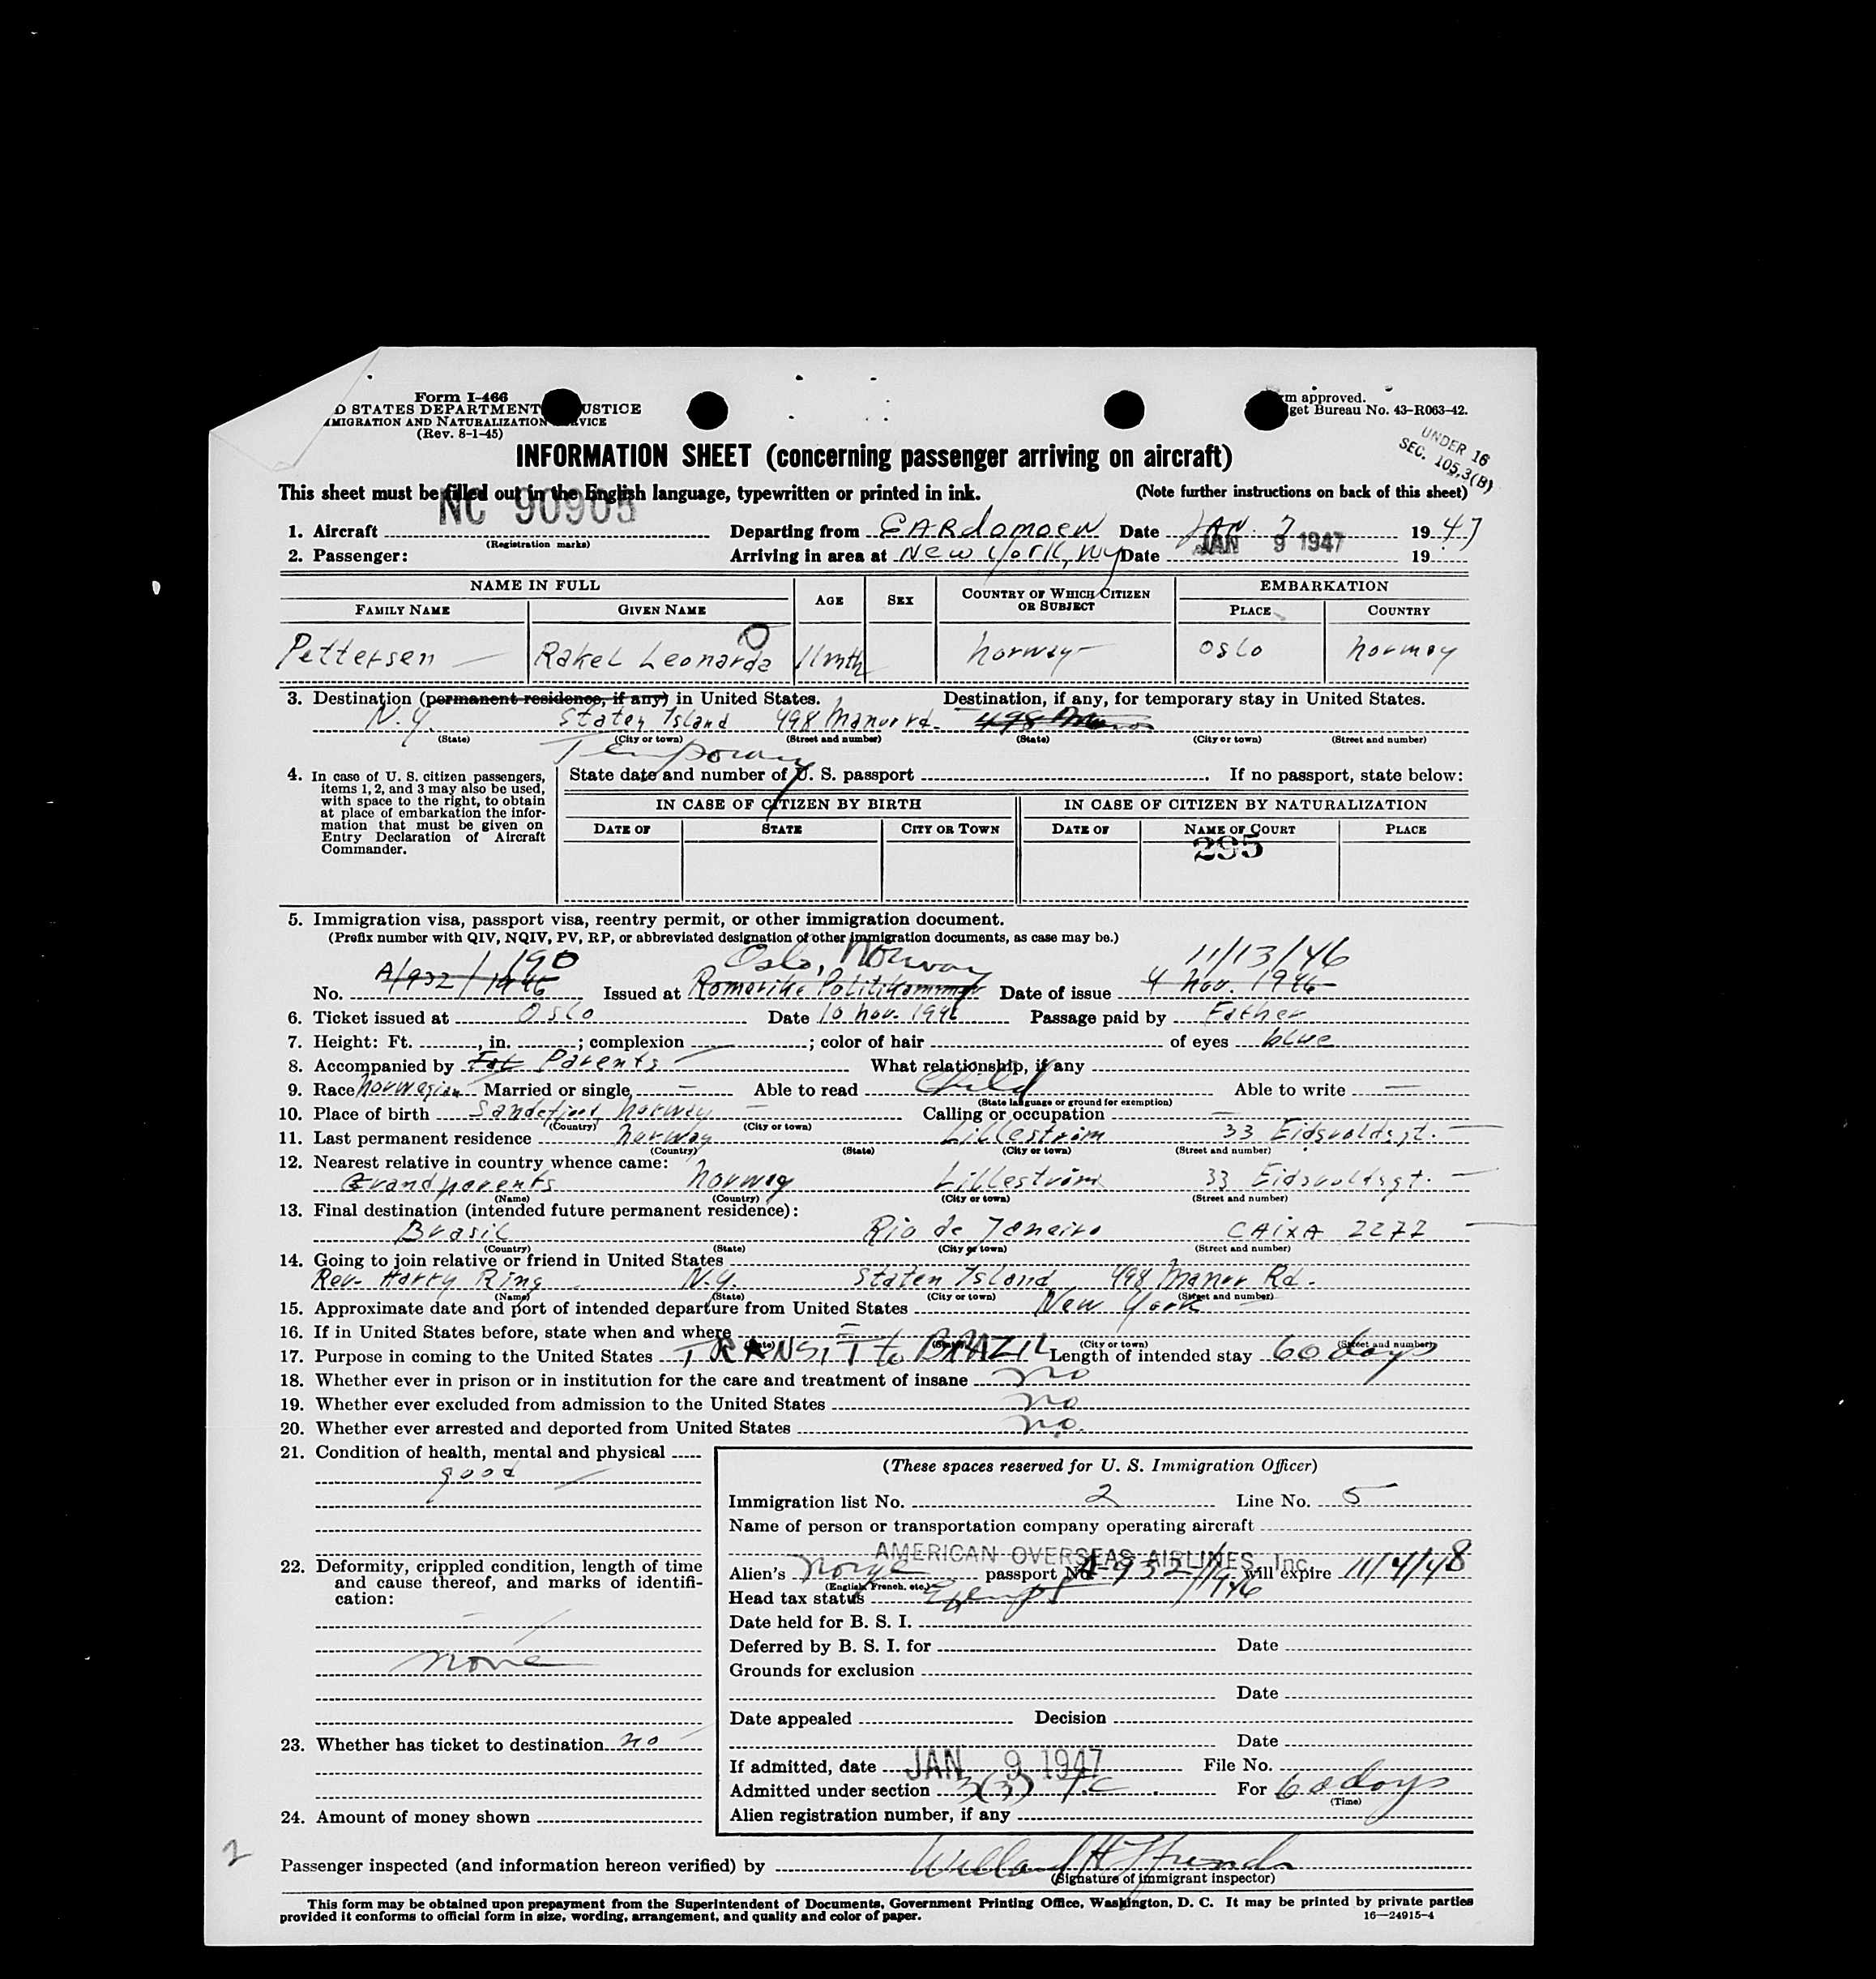 Form I-466
D STATES DEPARTMENT USTICE
MIGRATION AND NATURALIZATION VICE
(Rev. 8-1-45)
m approved.
get Bureau No. 43-R063-42.
UNDER 16
SEC. 105.3(B)
INFORMATION SHEET (concerning passenger arriving on aircraft)
This sheet must be filled out in the English language, typewritten or printed in ink. (Note further instructions on back of this sheet)
NC 90905
1. Aircraft (Registration marks) Departing from GARdomoen Date JAN. 7 1947
2. Passenger: Arriving in area at New York, NY Date JAN 9 1947 19
NAME IN FULL AGE SEX COUNTRY OF WHICH CITIZEN OR SUBJECT EMBARKATION
FAMILY NAME GIVEN NAME PLACE COUNTRY
Pettersen Rakel Leonarda 11 mth Norway Oslo Norway
3. Destination (permanent residence, if any) in United States. Destination, if any, for temporary stay in United States.
N.Y. Staten Island 498 Manor rd. 498 Manor
(State) (City or town) (Street and number) (State) (City or town) (Street and number)
Temporary
4. In case of U. S. citizen passengers, items 1, 2, and 3 may also be used, with space to the right, to obtain at place of embarkation the information that must be given on Entry Declaration of Aircraft Commander.
State date and number of U. S. passport . If no passport, state below:
IN CASE OF CITIZEN BY BIRTH IN CASE OF CITIZEN BY NATURALIZATION
DATE OF STATE CITY OR TOWN DATE OF NAME OF COURT PLACE
295
5. Immigration visa, passport visa, reentry permit, or other immigration document.
(Prefix number with QIV, NQIV, PV, RP, or abbreviated designation of other immigration documents, as case may be.)
190 Oslo, Norway 11/13/46
No. A/932/1946 Issued at Romerike Politikammer Date of issue 4 Nov. 1946
6. Ticket issued at Oslo Date 10 Nov. 1946 Passage paid by Father
7. Height: Ft. , in. ; complexion ; color of hair of eyes blue
8. Accompanied by Parents What relationship, if any
9. Race Norwegian Married or single – Able to read Child Able to write –
(State language or ground for exemption)
10. Place of birth Sandefjord, Norway Calling or occupation –
(Country) (City or town)
11. Last permanent residence Norway Lillestrøm 33 Eidsvoldsgt.
(Country) (State) (City or town) (Street and number)
12. Nearest relative in country whence came:
Grandparents Norway Lillestrøm 33 Eidsvoldsgt.
(Name) (Country) (City or town) (Street and number)
13. Final destination (intended future permanent residence):
Brasil Rio de Janeiro CAIXA 2277
(Country) (State) (City or town) (Street and number)
14. Going to join relative or friend in United States
Rev. Harry Ring N.Y. Staten Island 498 Manor Rd.
(Name) (State) (City or town) (Street and number)
15. Approximate date and port of intended departure from United States New York
16. If in United States before, state when and where –
(City or town) (Street and number)
17. Purpose in coming to the United States TRANSIT to BRAZIL Length of intended stay 60 days
18. Whether ever in prison or in institution for the care and treatment of insane no
19. Whether ever excluded from admission to the United States no
20. Whether ever arrested and deported from United States no.
21. Condition of health, mental and physical
good
22. Deformity, crippled condition, length of time and cause thereof, and marks of identification:
none
23. Whether has ticket to destination no
24. Amount of money shown
(These spaces reserved for U. S. Immigration Officer)
Immigration list No. 2 Line No. 5
Name of person or transportation company operating aircraft
AMERICAN OVERSEAS AIRLINES, Inc.
Alien's Norge passport No. A-932/1946 will expire 11/4/48
(English, French, etc.)
Head tax status Exempt
Date held for B. S. I.
Deferred by B. S. I. for Date
Grounds for exclusion
Date
Date appealed Decision
Date
If admitted, date JAN 9 1947 File No.
Admitted under section 3(3) For 60 days
(Time)
Alien registration number, if any
2
Passenger inspected (and information hereon verified) by
(Signature of immigrant inspector)
This form may be obtained upon prepayment from the Superintendent of Documents, Government Printing Office, Washington, D. C. It may be printed by private parties
provided it conforms to official form in size, wording, arrangement, and quality and color of paper. 16—24915-4